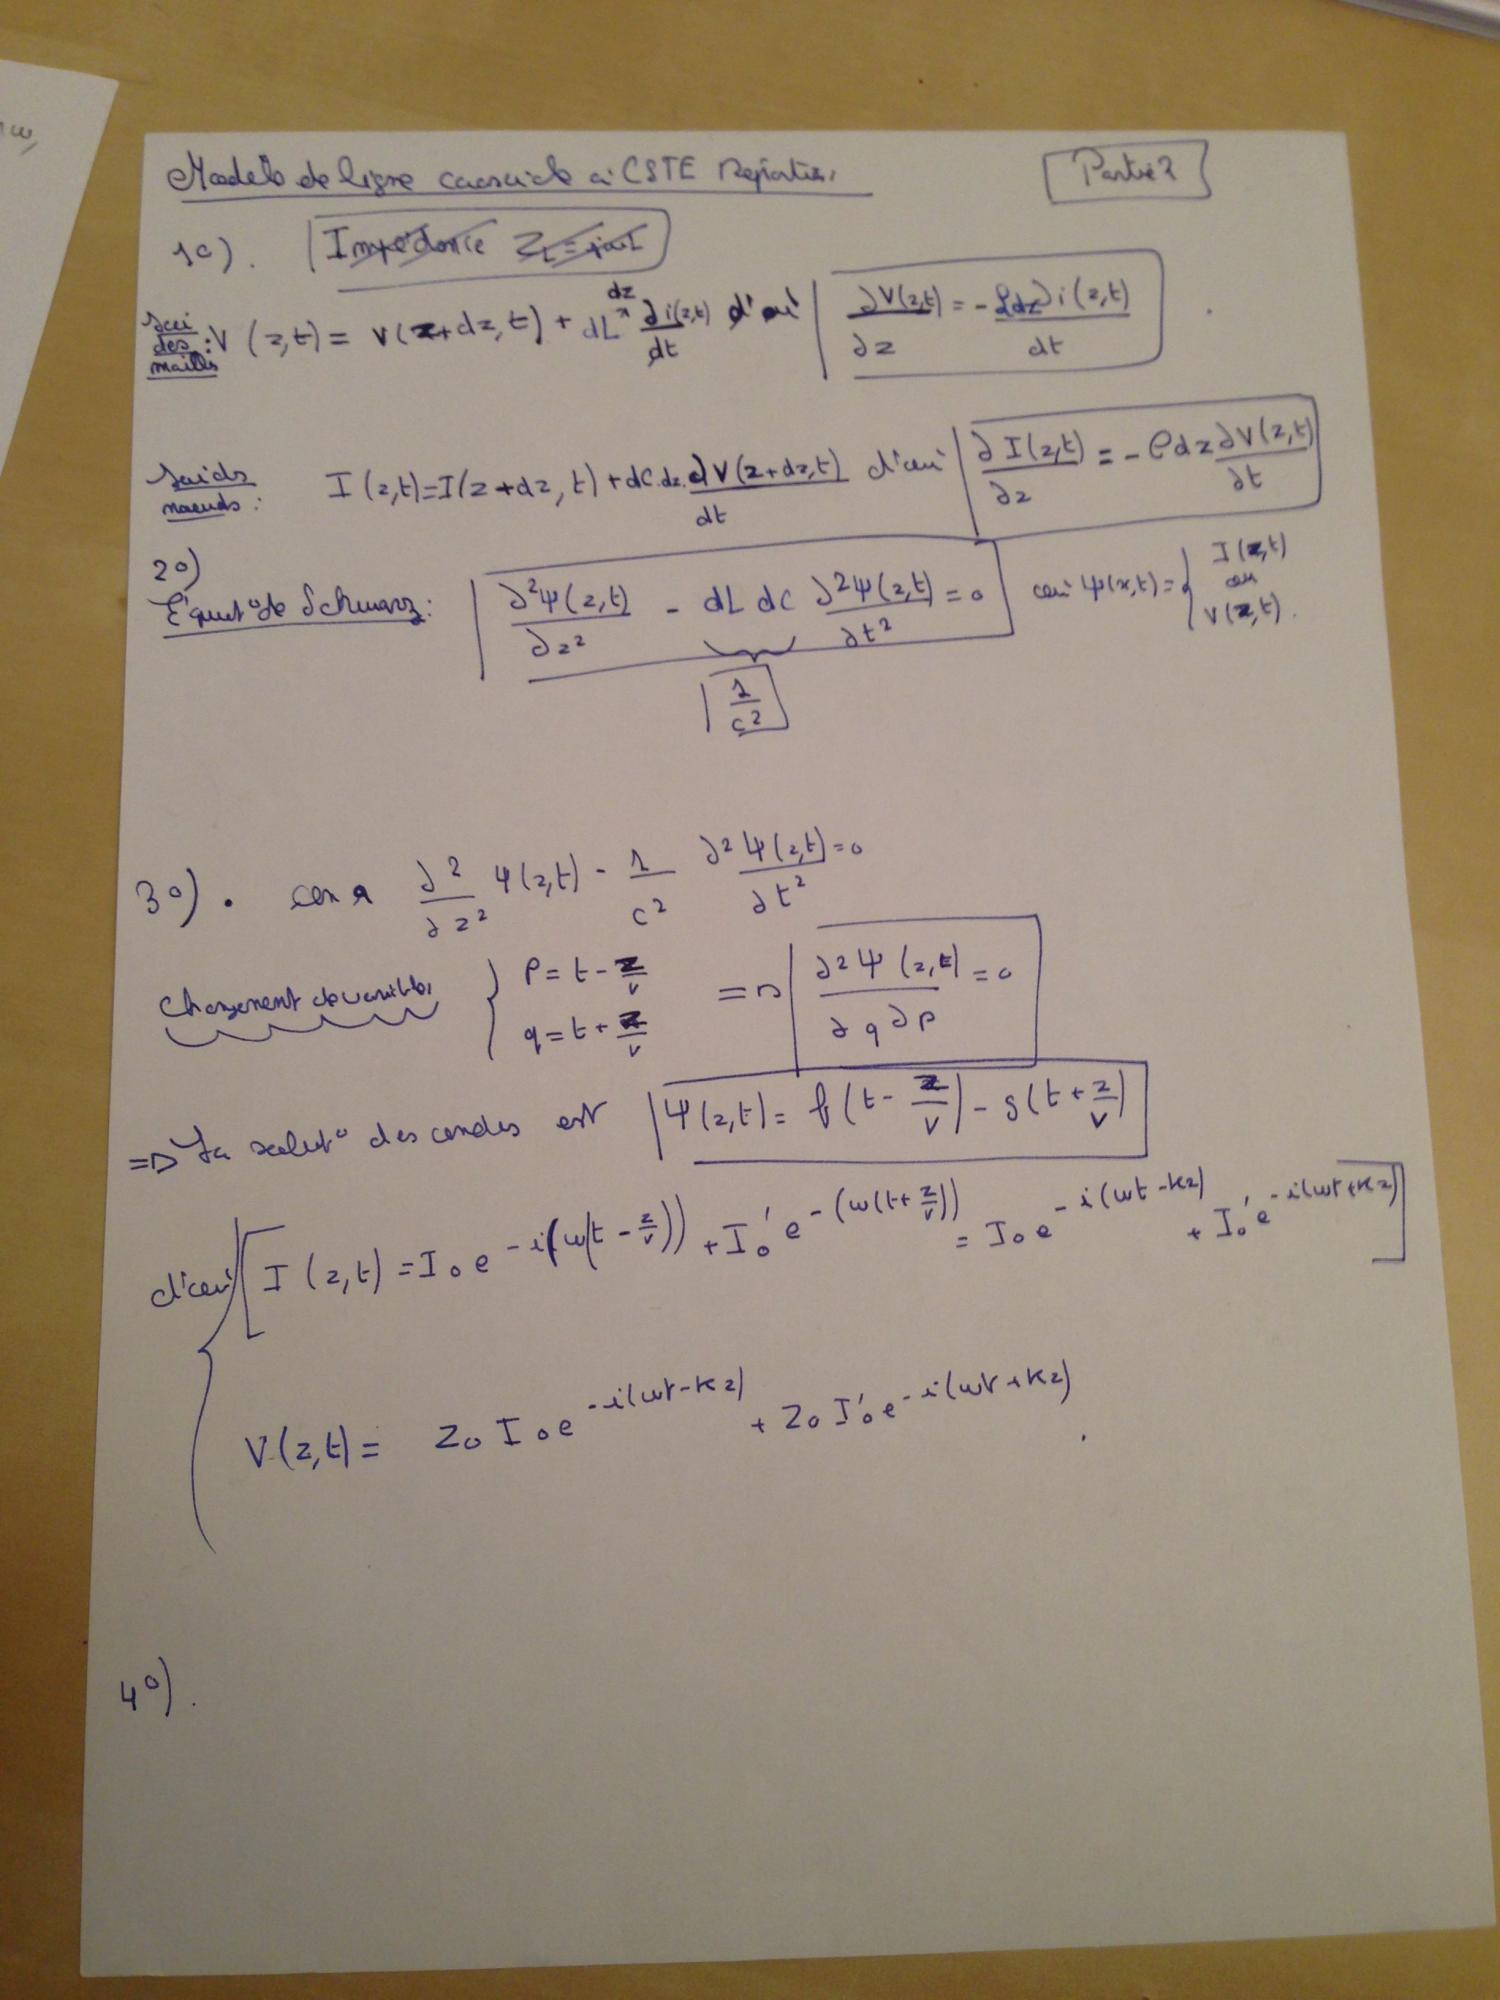 Modèle de ligne coaxiale à CSTE Réparties.
Partie 2
1°). Impédance Z_L = jωL
Loi des mailles : V(z,t) = V(z+dz,t) + dL dz ∂i(z,t)/dt d'où ∂V(z,t)/∂z = - ℒdz ∂i(z,t)/dt .
Loi des noeuds : I(z,t)=I(z+dz,t)+dC.dz.∂V(z+dz,t)/dt d'où ∂I(z,t)/∂z = - ρdz ∂V(z,t)/∂t
2°)
Équat° de Schwarz: ∂²Ψ(z,t)/∂z² - dL dC ∂²Ψ(z,t)/∂t² = 0 où Ψ(x,t)= { I(z,t) ou V(z,t).
1/c²
3°). on a ∂²/∂z² Ψ(z,t) - 1/c² ∂²Ψ(z,t)/∂t² = 0
Changement de variables { p = t - z/v
q = t + z/v
=> ∂²Ψ(z,t)/∂q∂p = 0
=> La solut° des ondes est Ψ(z,t) = f(t - z/v) - g(t + z/v)
d'où { I(z,t) = I₀ e^{-i(ω(t - z/v))} + I₀' e^{-(ω(t+z/v))} = I₀ e^{-i(ωt-kz)} + I₀' e^{-i(ωt+kz)}
V(z,t) = Z₀ I₀ e^{-i(ωt-kz)} + Z₀ I₀' e^{-i(ωt+kz)} .
4°).